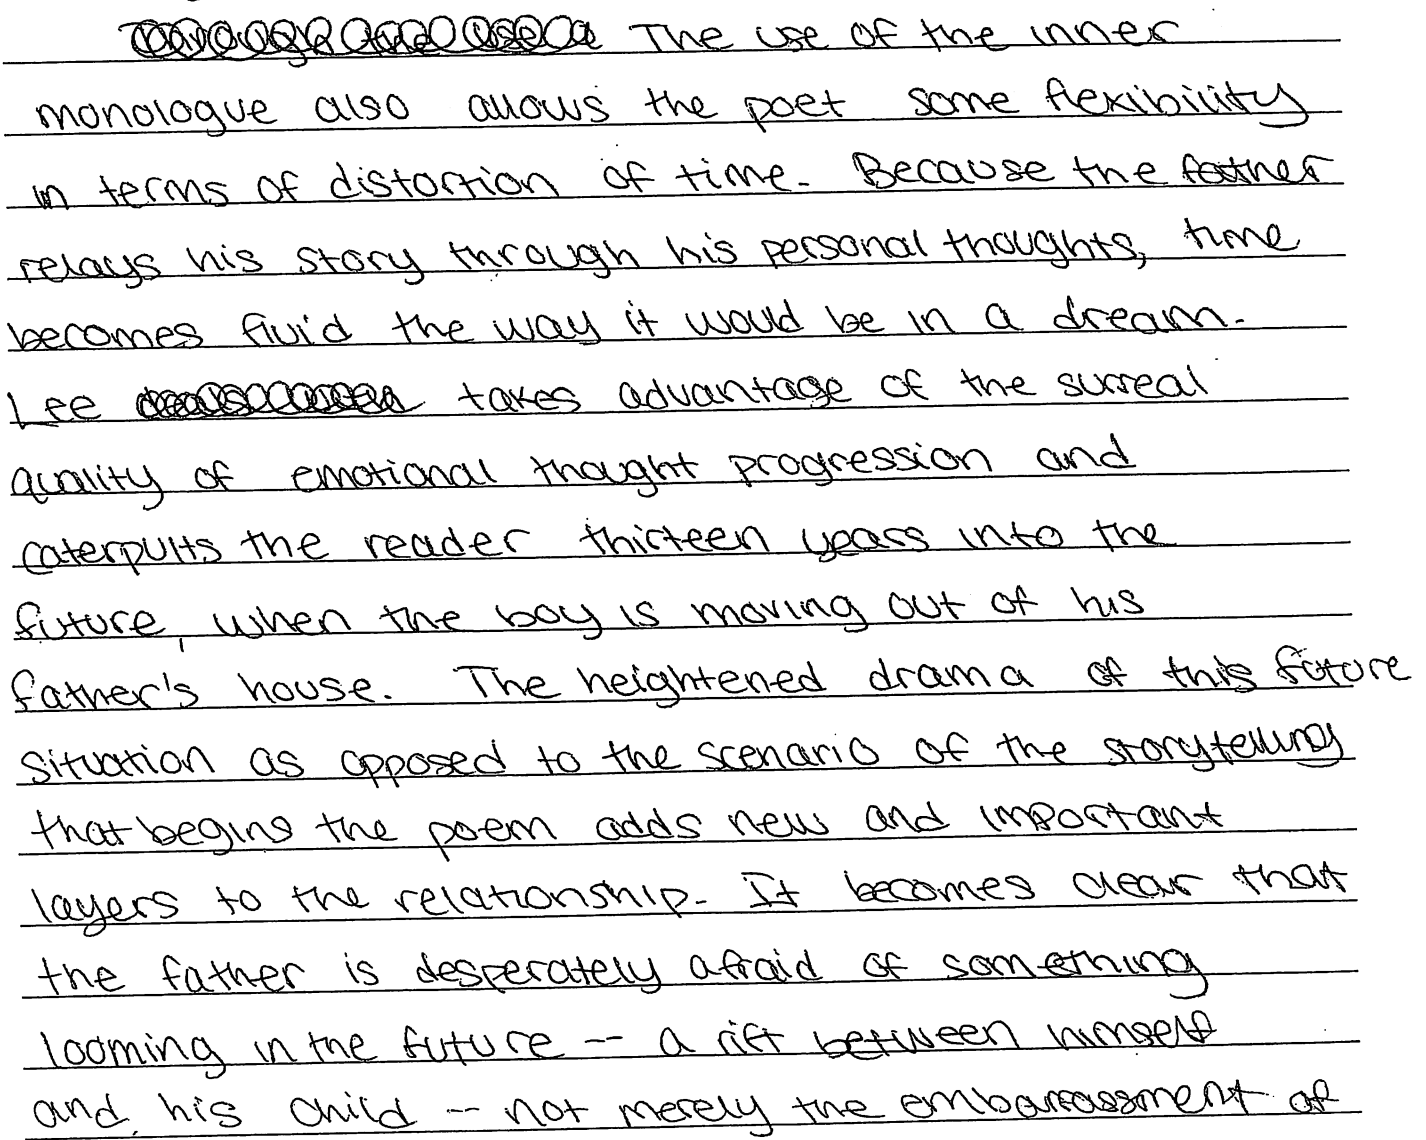 The use of the inner
monologue also allows the poet some flexibility
in terms of distortion of time. Because the father
relays his story through his personal thoughts, time
becomes fluid the way it would be in a dream.
Lee takes advantage of the surreal
quality of emotional thought progression and
caterpults the reader thirteen years into the
future, when the boy is moving out of his
father's house. The heightened drama of this future
situation as opposed to the scenario of the storytelling
that begins the poem adds new and important
layers to the relationship. It becomes clear that
the father is desperately afraid of something
looming in the future -- a rift between himself
and his child -- not merely the embarrassment of